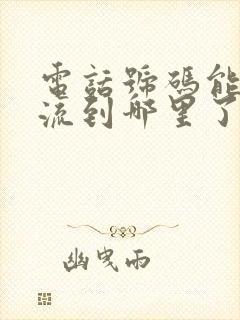 電話號碼能
流到哪里了
幽曳雨